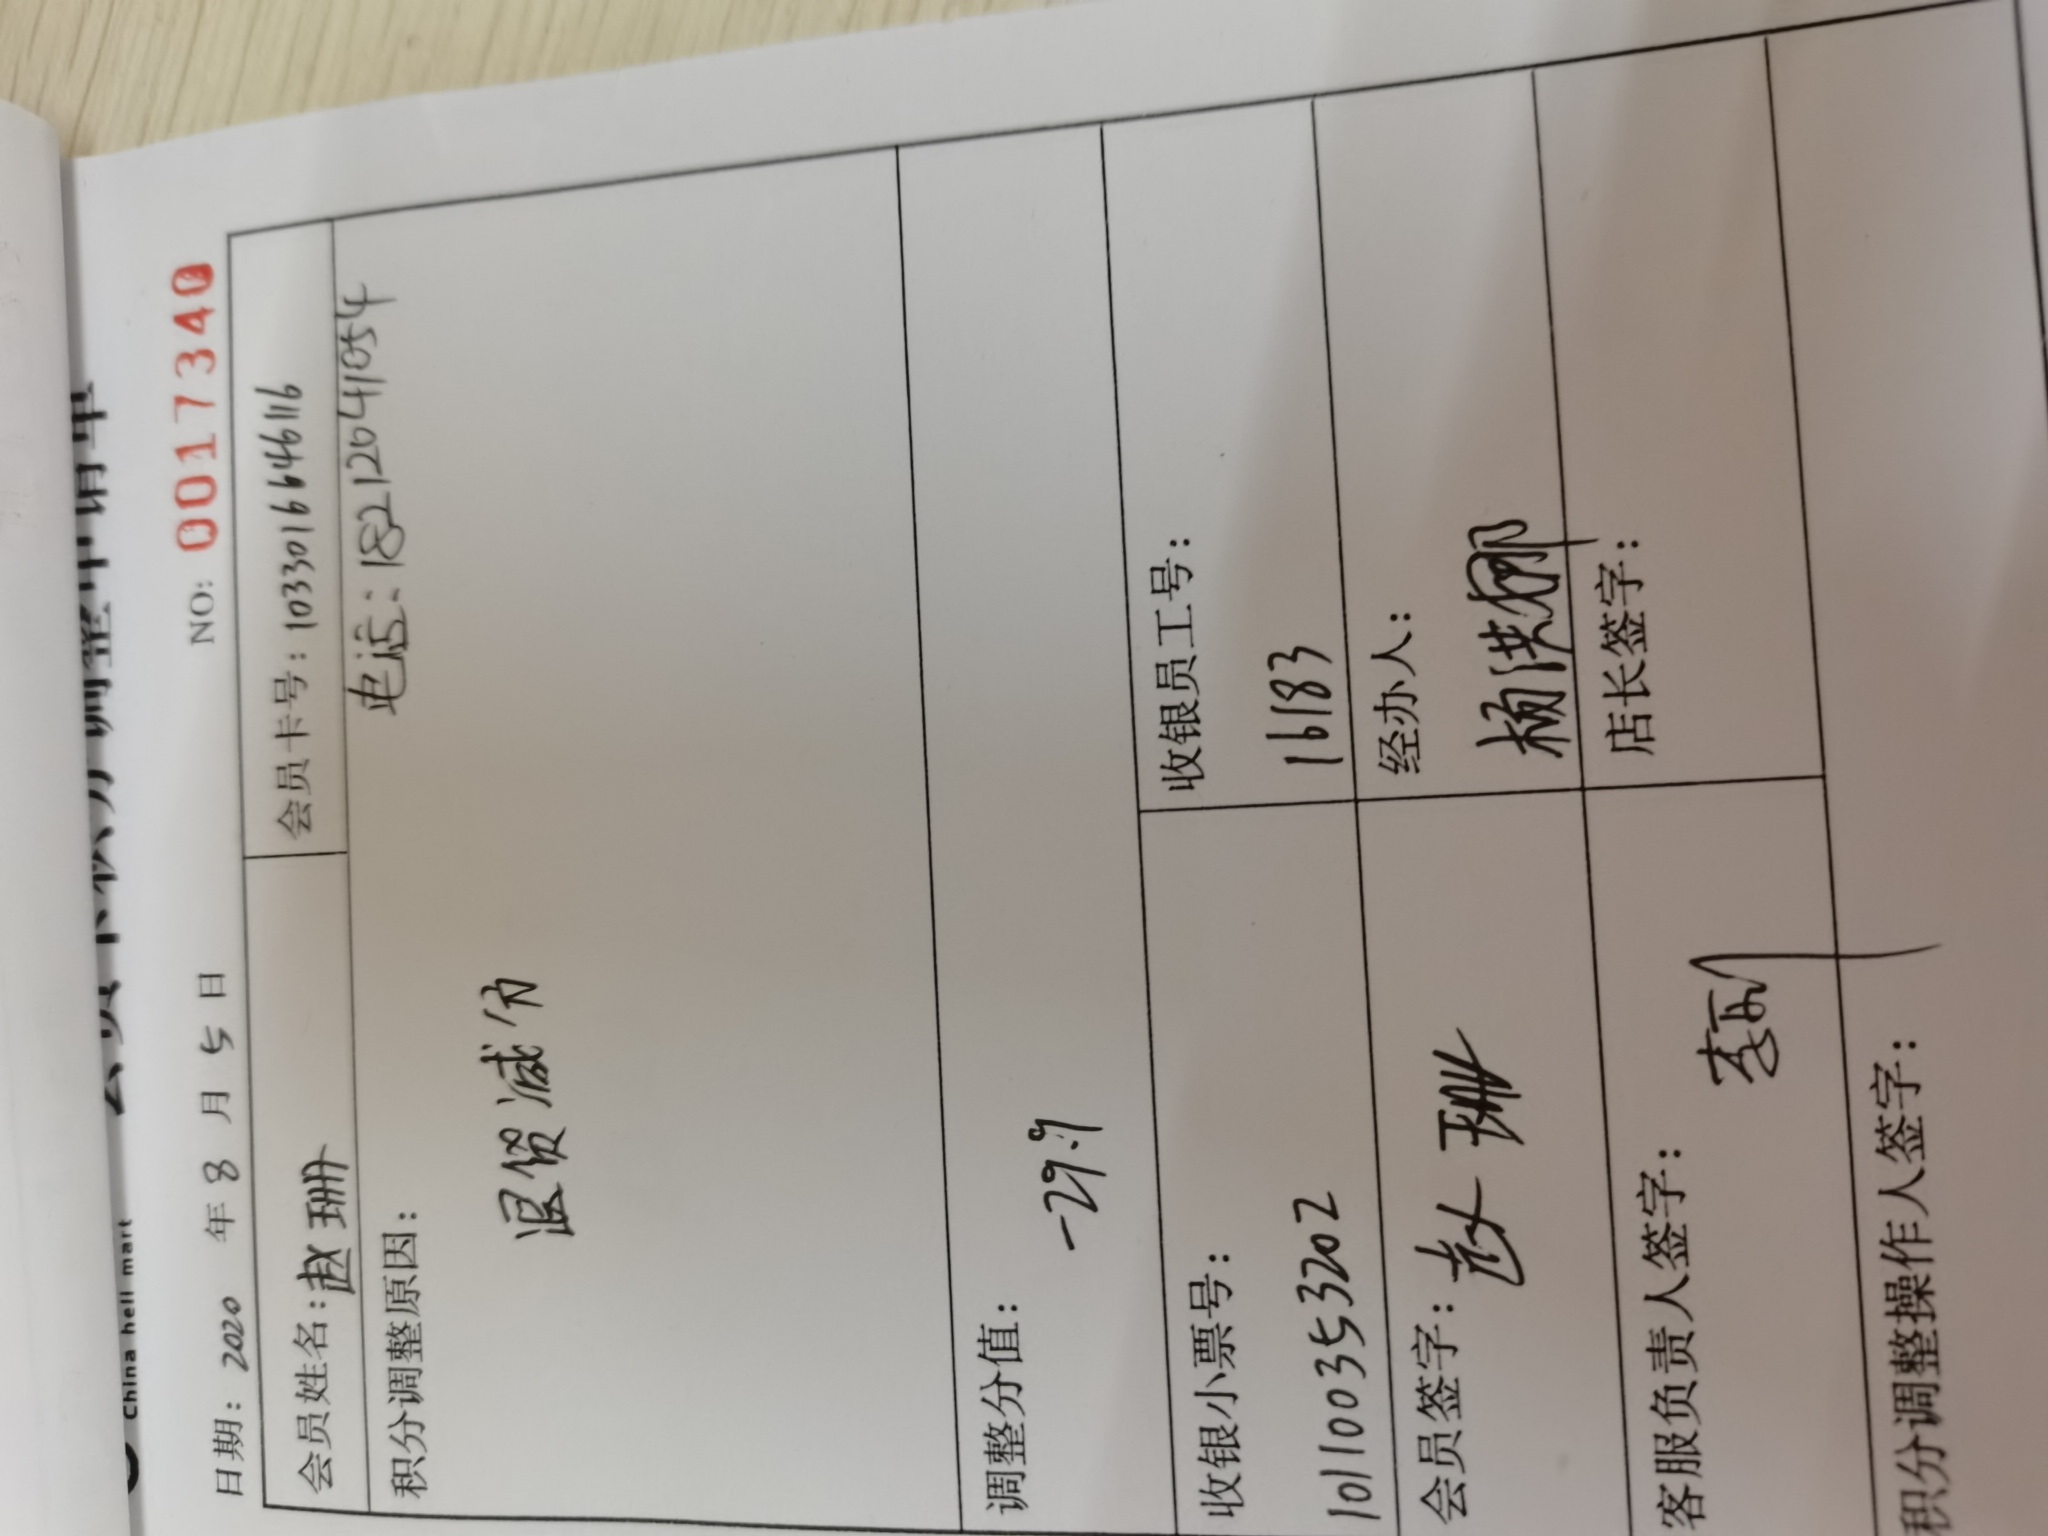 China hell mart
会员卡积分调整申请单
NO: 0017340
日期: 2020 年 8 月 5 日
会员姓名: 赵珊 会员卡号: 1033016646116
电话: 18212041054
积分调整原因:
退货减分
调整分值:
-29.9
收银小票号: 收银员工号:
101100353202 16183
会员签字: 赵珊 经办人:
杨洪娜
客服负责人签字: 店长签字:
积分调整操作人签字: